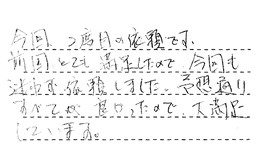 今回、2度目の依頼です。
前回とても満足したので今回も
迷わず依頼しました。予想通り
すべてが良かったので大満足
しています。